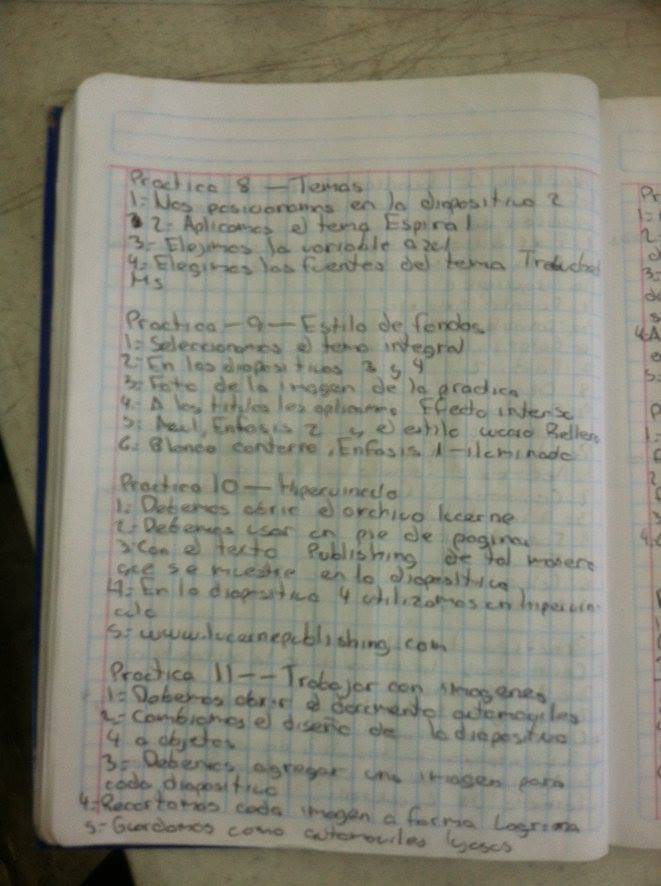 Practica 8 — Temas
1= Nos posicionamos en la diapositiva 2
2= Aplicamos el tema Espiral
3= Elejimos la variable azul
4= Elegimos las fuentes del tema Trebuchet
Ms
Practica — 9 — Estilo de fondos
1= Seleccionamos el tema integral
2= En las diapositivas 3 y 4
3= Foto de la imagen de la practica
4= A los titulos les aplicamos Efecto intenso
5= Azul, Enfasis 2 y el estilo
6= Blanco contorno, Enfasis 1 - iluminado
Practica 10 — Hipervinculo
1= Debemos abrir el archivo lucerne
2= Debemos usar un pie de pagina
3= Con el texto Publishing de tal manera
que se muestre en la diapositiva
4= En la diapositiva 4 utilizamos un hipervin-
culo
5= www.lucernepublishing.com
Practica 11 -- Trabajar con imagenes
1= Debemos abrir el documento automoviles
2= Cambiamos el diseño de la diapositiva
4 a objetos
3= Debemos agregar una imagen para
cada diapositiva
4= Recortamos cada imagen a forma Lagrima
5= Guardamos como automoviles
Pr
1=
2=
3=